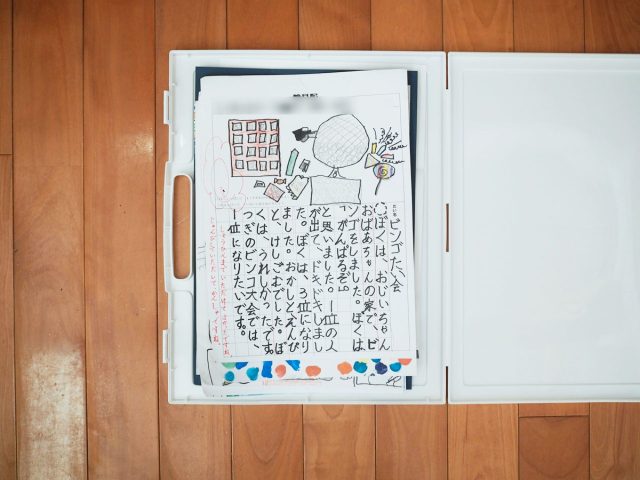 ビンゴたい会
ぼくは、おじいちゃん
おばあちゃんの家で、ビ
ンゴをしました。ぼくは
「がんばるぞ」
と思いました。1位の人
が出て、ドキドキしまし
た。ぼくは、3位になり
ました。おかしとえんぴ
と、けしごむでした。ぼ
くは、うれしかったです。
つぎのビンゴ大会では、
1位になりたいです。